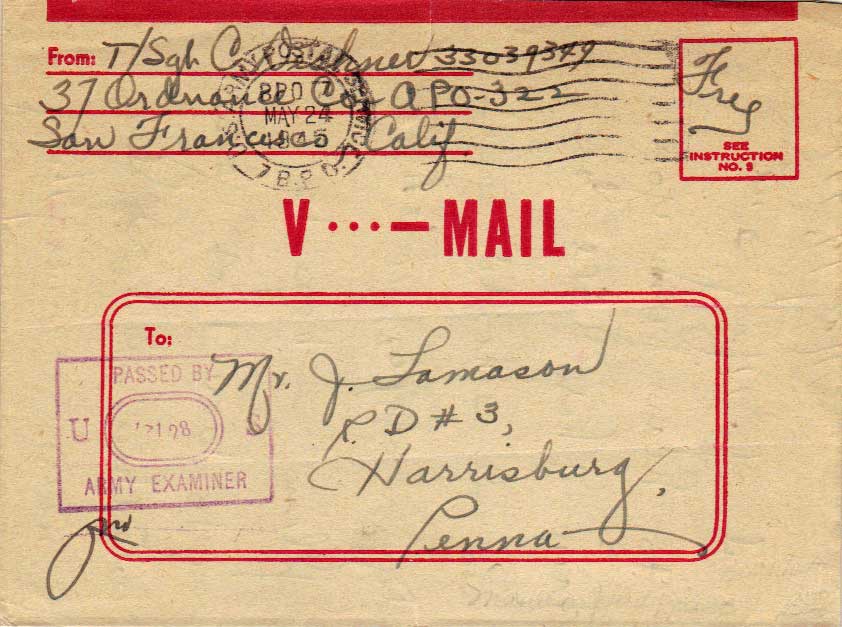 From: T/Sgt C. 33039349
37 Ordnance Co. APO-322
San Francisco Calif
U.S. ARMY POSTAL SERVICE
BPO 7
MAY 24
1945
7 B.P.O.
Free
SEE
INSTRUCTION
NO. 9
V ···— MAIL
To:
Mr. J. Lamason
R.D # 3,
Harrisburg,
Penna
PASSED BY
U S
ARMY EXAMINER